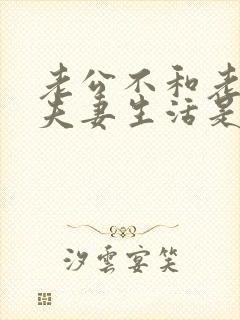 老公不和老
夫妻生活是
汐雲宴笑